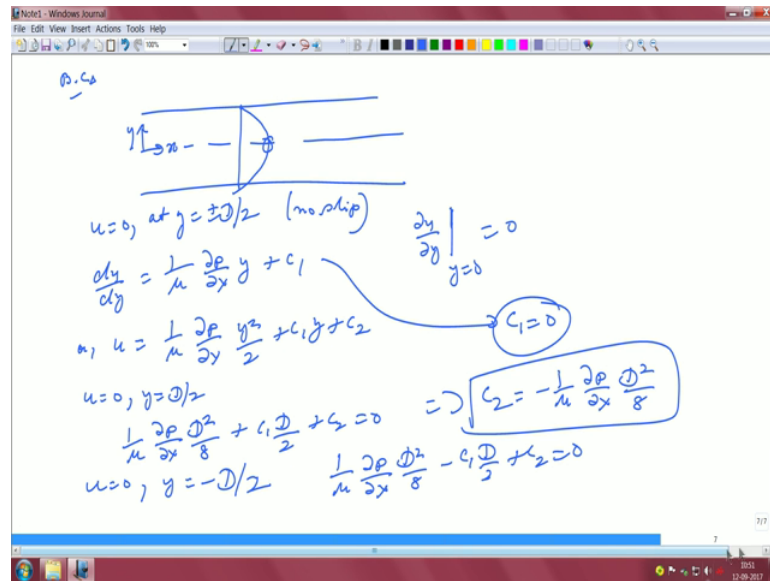 Note1 - Windows Journal
File Edit View Insert Actions Tools Help
100%
B I
B.Cs
y x
u=0, at y=±D/2 (no slip)
∂u/∂y |y=0 = 0
du/dy = 1/μ ∂p/∂x y + c₁
c₁=0
or, u = 1/μ ∂p/∂x y²/2 + c₁y + c₂
u=0, y=D/2
1/μ ∂p/∂x D²/8 + c₁ D/2 + c₂ = 0
=> c₂ = -1/μ ∂p/∂x D²/8
u=0, y=-D/2 1/μ ∂p/∂x D²/8 - c₁ D/2 + c₂ = 0
7/7
7
10:51
12-09-2017